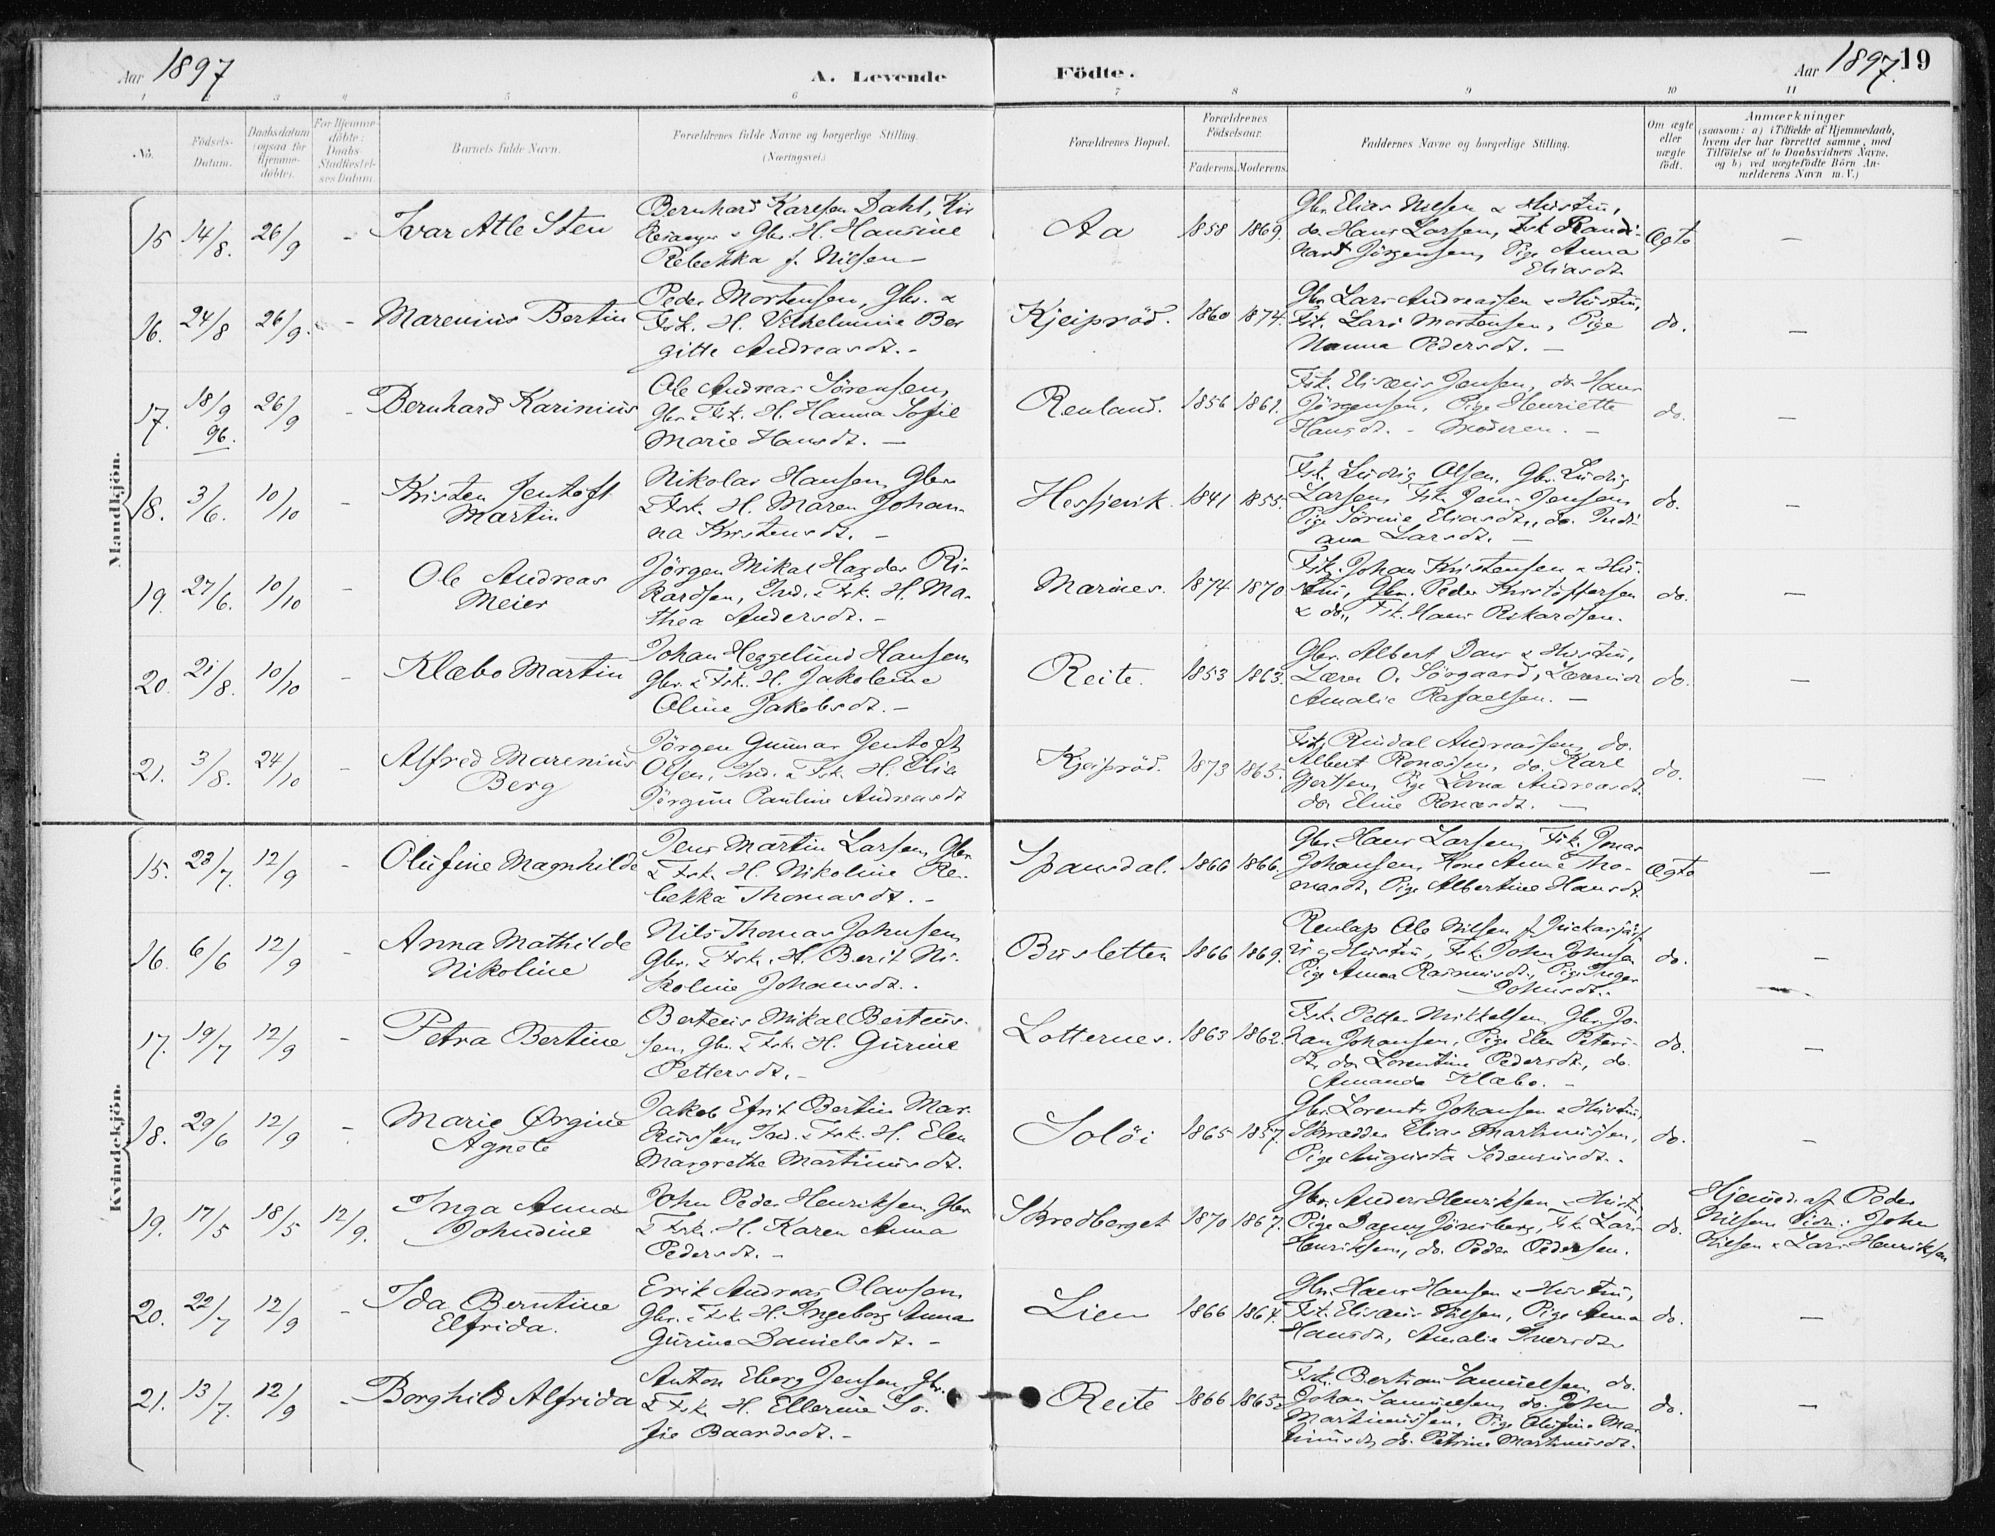 Aar 1897 A. Levende Födte. Aar 1897. 19
1 2 3 4 5 6 7 8 9 10 11
No. Födsels-Datum. Daabsdatum (ogsaa for Hjemme-döbte). For Hjemme-döbte: Daabs-Stadfæstel-ses Datum. Barnets fulde Navn. Forældrenes fulde Navne og borgerlige Stilling. (Næringsvei.) Forældrenes Bopæl. Forældrenes Födselsaar. Faderens. Moderens. Faddernes Navne og borgerlige Stilling. Om ægte eller uægte födt. Anmærkninger (saasom: a) i Tilfælde af Hjemmedaab, hvem der har forrettet samme, med Tilföielse af to Daabsvidners Navne, og b) ved uægtefödte Börn An-melderens Navn m. V.)
Mandkjön.
15 14/8. 26/9 - Ivar Atle Sten
Bernhard Karlsen Dahl, Kir
& Gbr. H. Hansine
Rebekka f. Nilsen
Aa 1858 1869.
Gbr. Elias Nilsen & Hustru,
do. Hans Larsen, Fsk.
Jörgensen, Pige Anna
Eliasdt.
Ægte —
16. 24/8 26/9. - Marenius Bertin
Peder Mortensen, Gbr. &
Fsk. H. Vilhelmine Ber
gitte Andreasdt. -
Kjeiprød. 1860 1874.
Gbr. Lars Andreassen & Hustru,
Fsk. Lars Mortensen, Pige
Hanna Pedersdt. —
do. —
17. 18/9 96. 26/9 - Bernhard Karinius
Ole Andreas Sörensen,
Gbr. & Fsk. H. Hanna Sofie
Marie Hansdt. —
Renland. 1856 1861.
Fsk. Elisæus Jensen, do. Hans
Jörgensen, Pige Henriette
Hansdt. - Moderen. -
do. —
18. 3/6. 10/10 - Kristen Jentoft
Martin
Nikolai Hansen, Gbr.
& Fsk. H. Maren Johan-
na Kristensdt. -
Hessjevik. 1841 1855.
Fsk. Ludvig Olsen, Gbr. Ludvig
Larsen, Fsk. Jens Jensen,
Pige Sørine Eliasdt., do. Indi-
ana Larsdt. —
do. —
19. 27/6. 10/10 - Ole Andreas
Meier
Jörgen Mikal Hagdor Ri-
kardsen, Ind. & Fsk. H. Ma-
thea Andersdt. -
Marines. 1874 1870
Fsk. Johan Kristensen & Hu-
stru, Gbr. Peder Kristoffersen
& do., Fsk. Hans Rikardsen.
do. —
20. 21/8. 10/10 - Klæbo Martin
Johan Heggelund Hansen,
Gbr. & Fsk. H. Jakobine
Oline Jakobsdt. -
Reite. 1853 1863.
Gbr. Albert Dav & Hustru,
Lærer O. Sörgaard, Lærerinde
Amalie Rafaelsen. —
do. —
21. 3/8. 24/10 - Alfred Marenius
Berg
Jörgen Gunnar Jentoft
Olsen, Ind. & Fsk. H. Elia
Jörgine Pauline Andreasdt
Kjeiprød. 1873 1865.
Fsk. Rindal Andreassen, do.
Albert Ronæssen, do. Karl
Bertsen, Pige Lovna Andreasdt.
do. Eline Ronæsdt. —
do. —
Kvindekjön.
15. 23/7. 12/9 - Olufine Magnhilde
Jens Martin Larsen, Gbr.
& Fsk. H. Nikoline Re-
bekka Thomasdt. -
Spansdal. 1866 1866.
Gbr. Hans Larsen, Fsk. Jonas
Johansen, Kone Anne Tho-
masdt, Pige Albertine Hansdt.
Ægte —
16. 6/6 12/9 - Anna Mathilde
Nikoline
Nils Thomas Johnsen,
Gbr. & Fsk. H. Berit Ni-
koline Johansdt..
Busletten 1866 1869.
Renlap Ole Nilsen f. Juckasjärf-
vi & Hustru, Fsk. John Johnsen
Pige Anna Rasmusdt., Pige Inger
Johnsdt.
do. —
17. 19/7 12/9 - Petra Bertine
Berteus Mikal Berteus-
sen, Gbr. & Fsk. H. Gurine
Pettersdt. -
Lotternes. 1863 1862.
Fsk. Petter Mikkelsen, Gbr. Jo-
han Johansen, Pige Elen Peters-
dt, do. Lorentine Pedersdt, do.
Amanda Klæbo. -
do. —
18. 29/6 12/9 - Marie Ørgine
Agnete
Jakob Efrit Bertin Mar-
kussen, Ind. & Fsk. H. Elen
Margrethe Martinusdt.
Solöi 1865 1857.
Gbr. Lorents Johansen & Hustru,
Skrædder Elias Martinussen,
Pige Augusta Sedeniusdt..
do. -
19. 17/5 18/5 12/9. Inga Anna
Johndine
John Peder Henriksen, Gbr.
& Fsk. H. Karen Anna
Pedersdt. -
Skredberget 1870 1867.
Gbr. Anders Henriksen & Hustru,
Pige Dagny Jönsberg, Fsk. Lars
Henriksen, do. Peder Pedersen.
do.
Hjemmed. af Peder
Nilsen. Vidn: John
Nilsen & Lars Henriksen
20. 22/7 12/9 - Ida Berntine
Elfrida.
Erik Andreas Olavsen,
Gbr. & Fsk. H. Ingeborg Anna
Gurine Danielsdt. -
Lien 1866 1867.
Gbr. Hans Hansen & Hustru,
Fsk. Elisæus Nilsen, Pige Anna
Hansdt, Amalie Iversdt.
do. —
21. 13/7. 12/9 - Borghild Alfrida
Anton Eberg Jensen, Gbr.
& Fsk. H. Ellerine So-
fie Baardsdt. -
Reite 1866 1865.
Fsk. Bertian Samuelsen, do.
Johan Samuelsen, do. John
Martinussen, Pige Olufine Mar
tinusdt, do. Petrine Martinusdt.
do. —